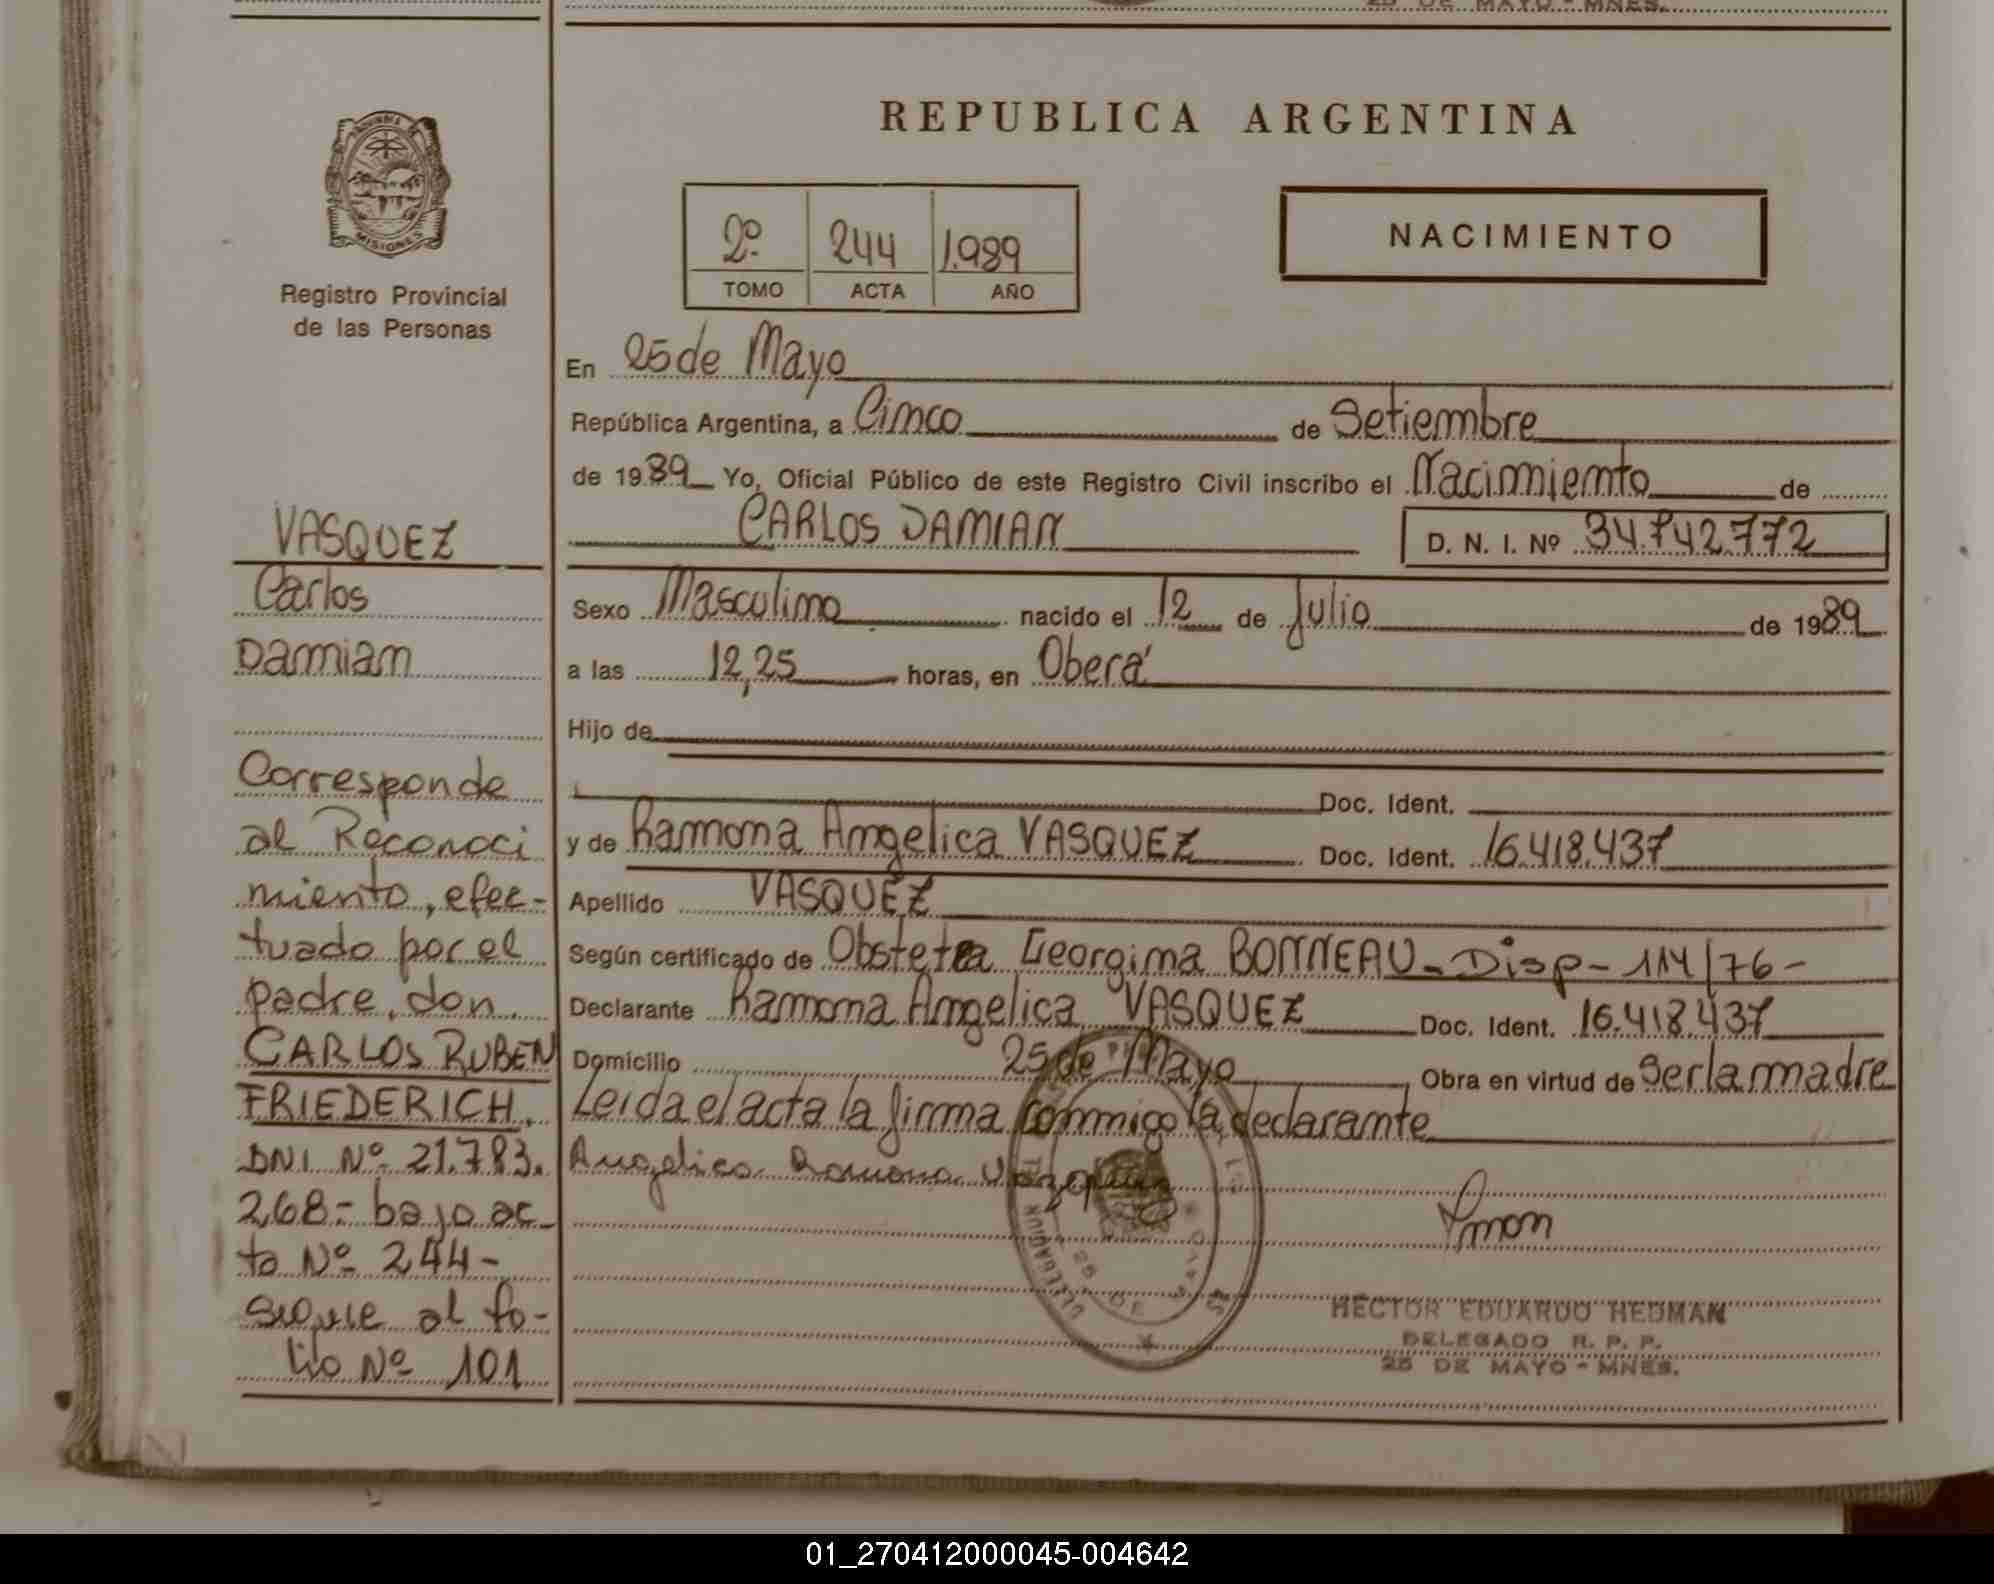 25 DE MAYO - MNES.
REPUBLICA ARGENTINA
MISIONES
Registro Provincial
de las Personas
2º 244 1.989
TOMO ACTA AÑO
NACIMIENTO
En 25 de Mayo
República Argentina, a Cinco de Setiembre
de 1989 Yo, Oficial Público de este Registro Civil inscribo el Nacimiento de
CARLOS DAMIAN D. N. I. Nº 34.742.772
Sexo Masculino nacido el 12 de Julio de 1989
a las 12,25 horas, en Oberá
Hijo de
Doc. Ident.
y de Ramona Angelica VASQUEZ Doc. Ident. 16.418.437
Apellido VASQUEZ
Según certificado de Obstetra Georgina BONNEAU - Disp - 114/76 -
Declarante Ramona Angelica VASQUEZ Doc. Ident. 16.418.437
Domicilio 25 de Mayo Obra en virtud de ser la madre
Leida el acta la firma conmigo la declarante
Angelica Ramona
25 DE MAYO
HECTOR EDUARDO HEDMAN
DELEGADO R. P. P.
25 DE MAYO - MNES.
VASQUEZ
Carlos
Damian
Corresponde
al Reconoci
miento, efec-
tuado por el
padre, don
CARLOS RUBEN
FRIEDERICH,
DNI Nº 21.783.
268 - bajo ac-
ta Nº 244 -
sigue al fo-
lio Nº 101
01_270412000045-004642